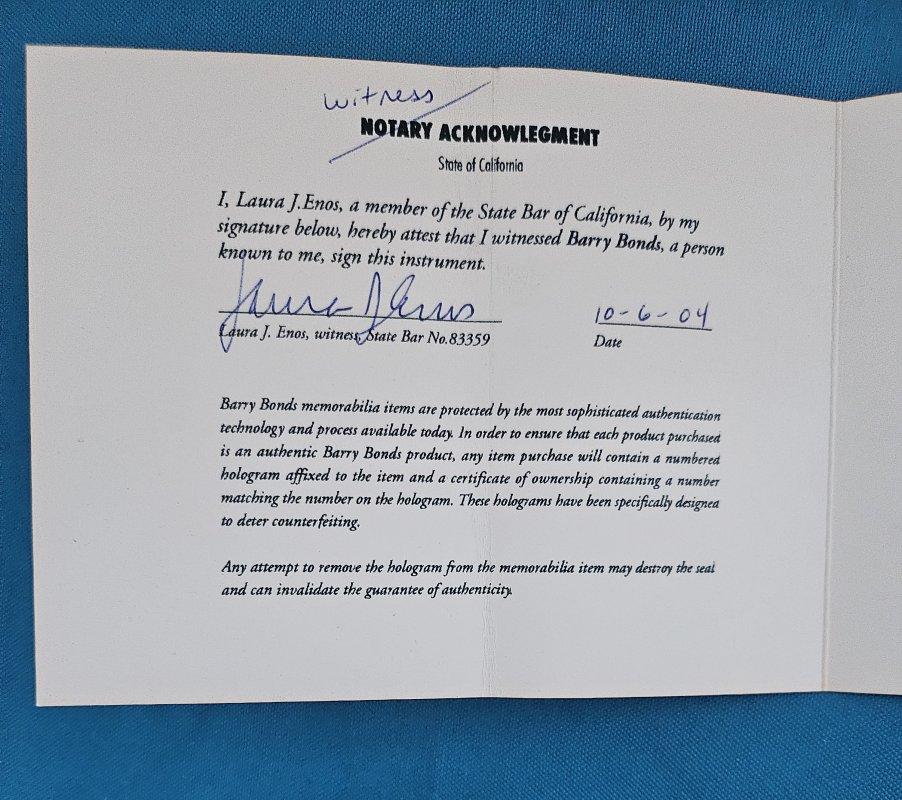 witness
NOTARY ACKNOWLEGMENT
State of California
I, Laura J.Enos, a member of the State Bar of California, by my
signature below, hereby attest that I witnessed Barry Bonds, a person
known to me, sign this instrument.
Laura J Enos 10-6-04
Laura J. Enos, witness, State Bar No.83359 Date
Barry Bonds memorabilia items are protected by the most sophisticated authentication
technology and process available today. In order to ensure that each product purchased
is an authentic Barry Bonds product, any item purchase will contain a numbered
hologram affixed to the item and a certificate of ownership containing a number
matching the number on the hologram. These holograms have been specifically designed
to deter counterfeiting.
Any attempt to remove the hologram from the memorabilia item may destroy the seal
and can invalidate the guarantee of authenticity.